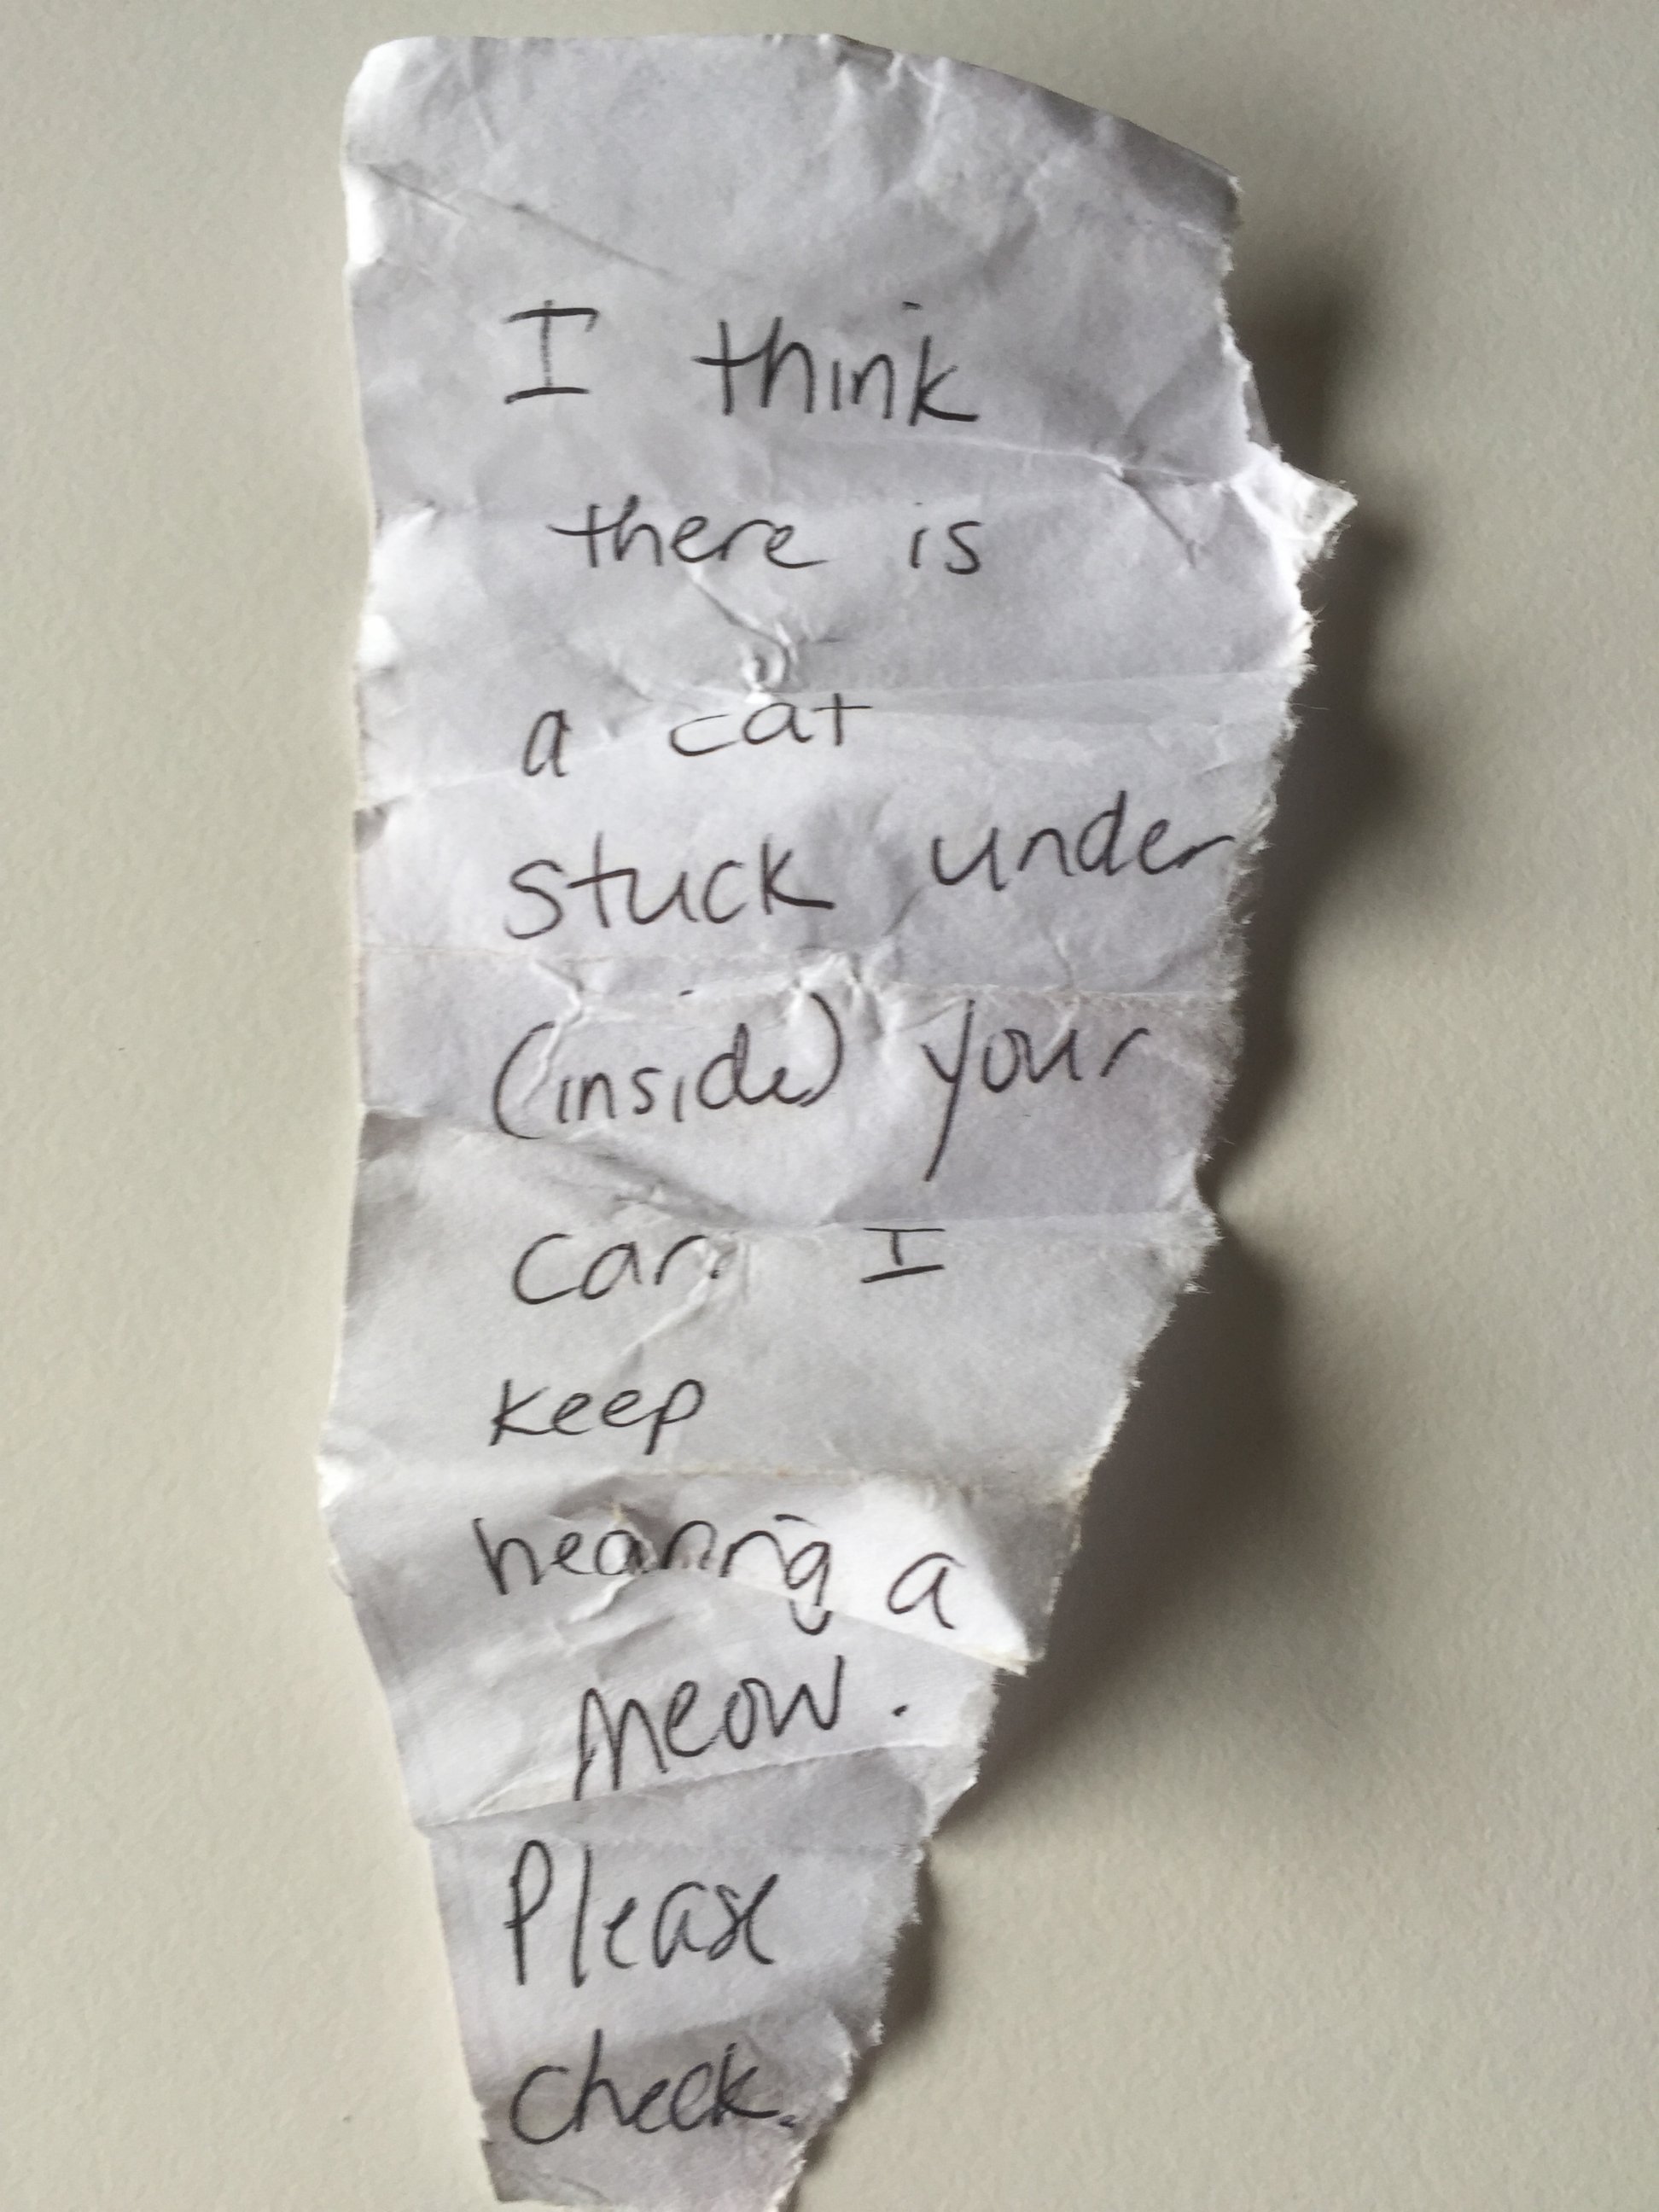 I think
there is
a cat
stuck under
(inside) your
car. I
keep
hearing a
meow.
Please
check.